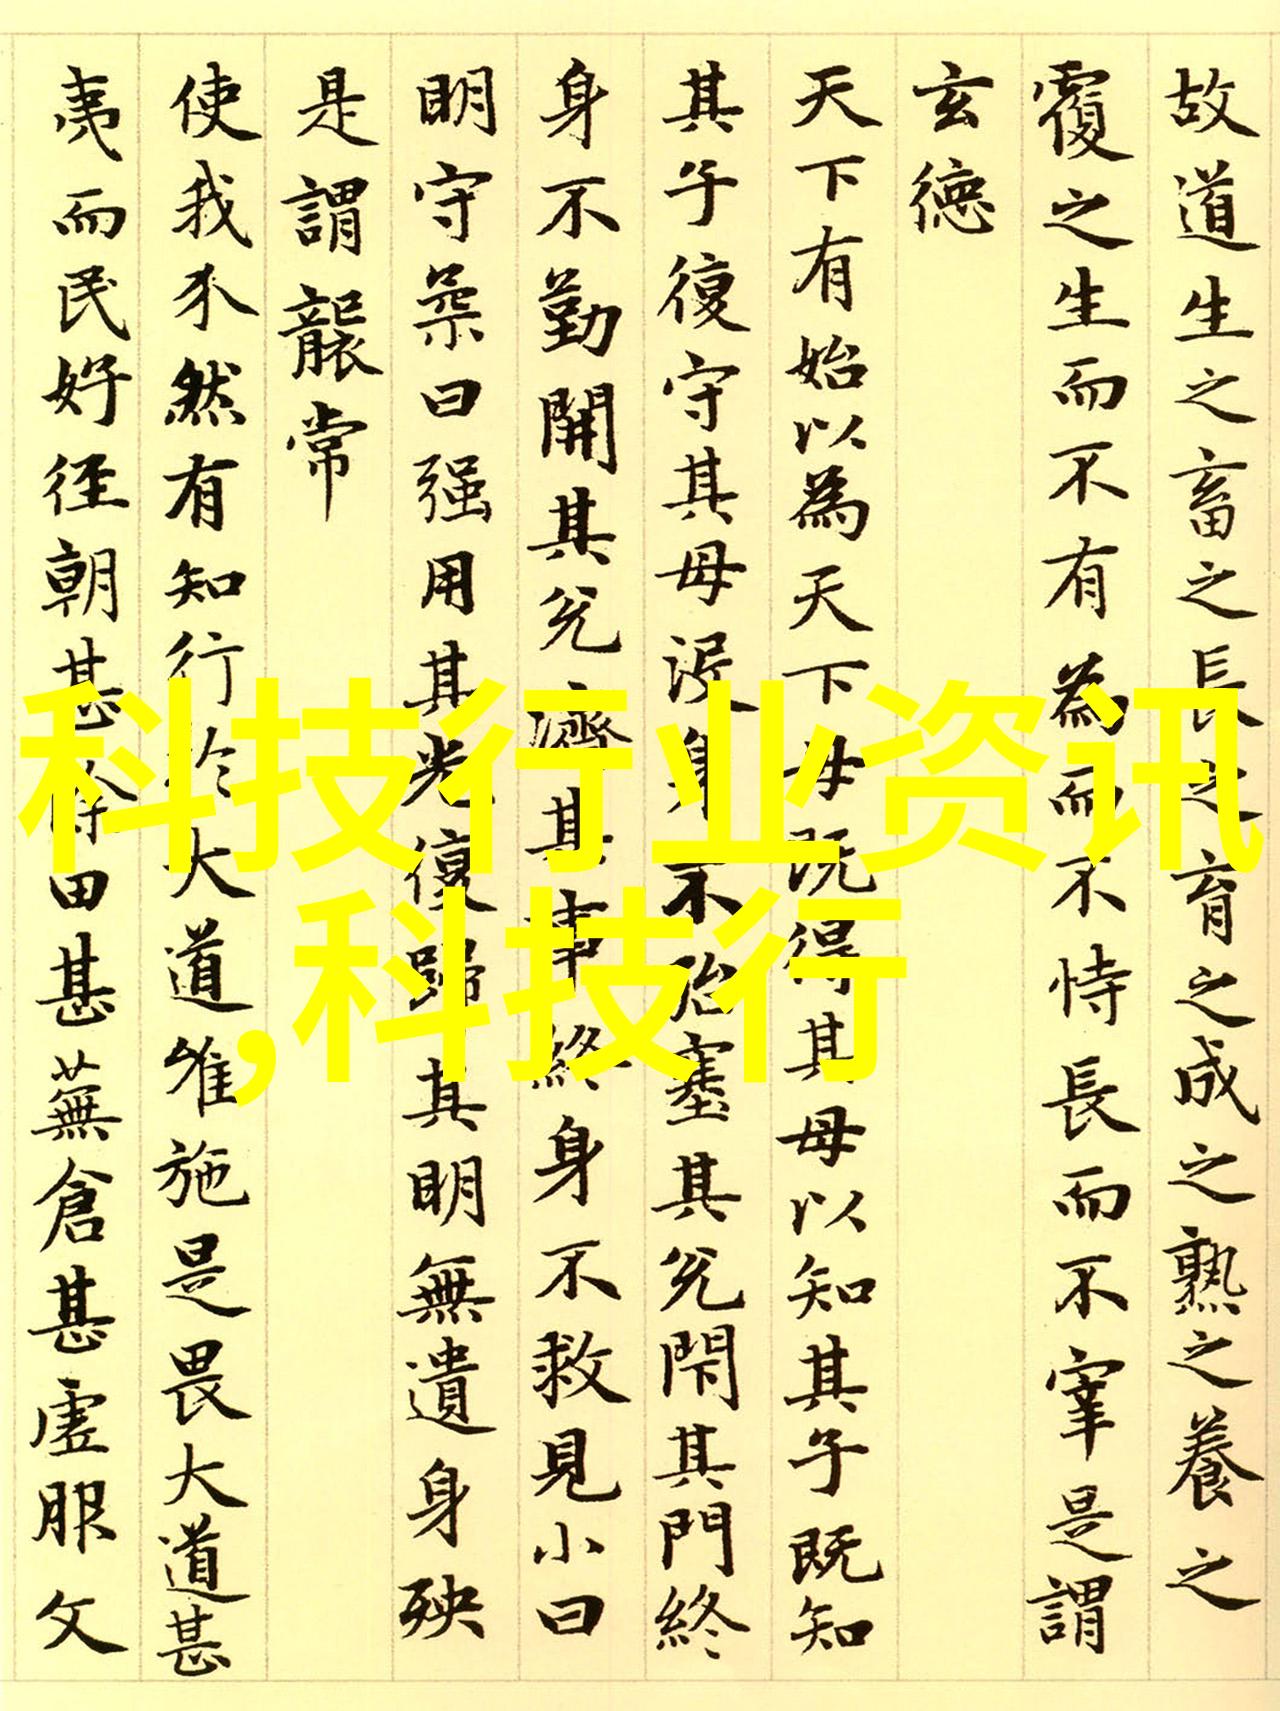 故道生之畜之長之育之成之熟之養之
覆之生而不有為而不恃長而不宰是謂
玄德
天下有始以為天下母既得其母以知其子既知
其子復守其母沒身不殆塞其兊閇其門終
身不勤開其兊濟其事終身不救見小曰
明守柔曰强用其光復歸其明無遺身殃
是謂襲常
使我介然有知行於大道唯施是畏大道甚
夷而民好徑朝甚除田甚蕪倉甚虛服文
科技行业资讯
,科技行